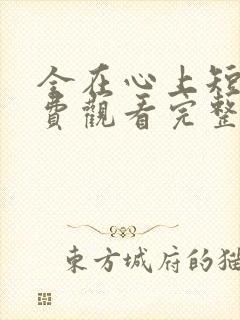 全在心上短
費觀看完整
東方城府的猫